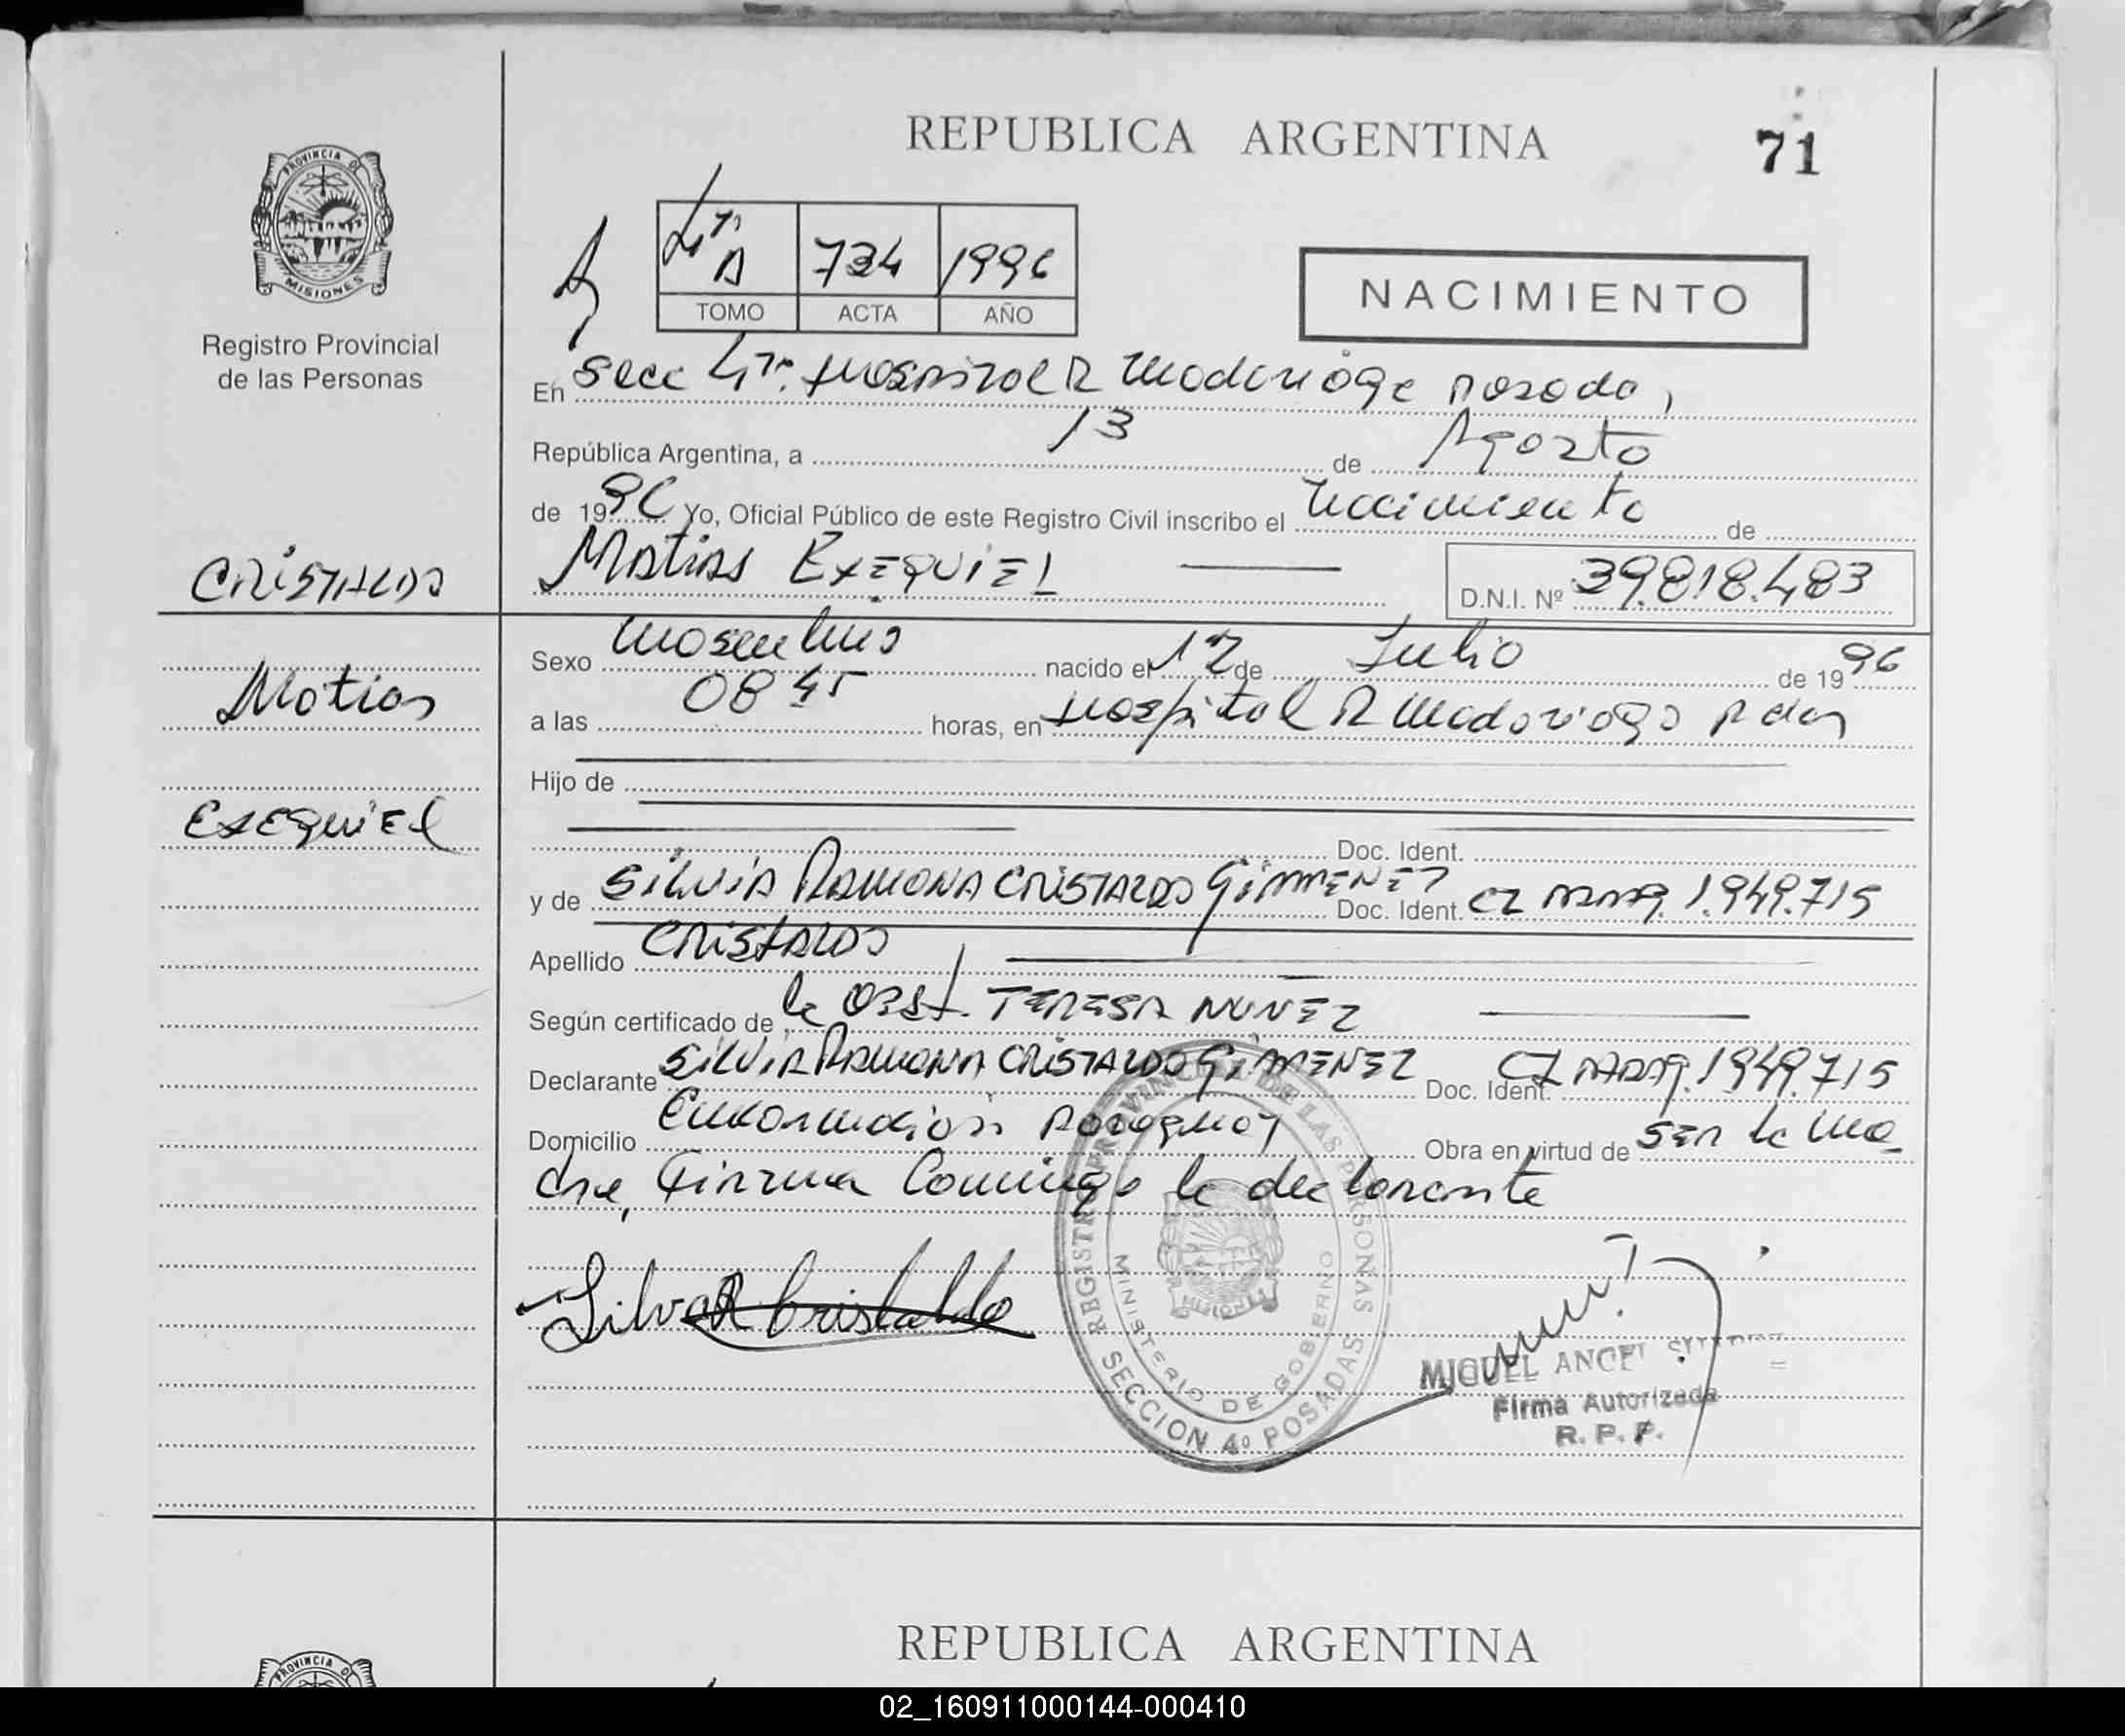 REPUBLICA ARGENTINA
71
PROVINCIA DE
MISIONES
Registro Provincial
de las Personas
4ta A 734 1996
TOMO ACTA AÑO
NACIMIENTO
En Secc 4ta. Hospital R Madariaga Posadas,
República Argentina, a 13 de Agosto
de 1996 Yo, Oficial Público de este Registro Civil inscribo el nacimiento de
CRISTALDO
MATIAS EXEQUIEL
D.N.I. Nº 39.818.483
Sexo masculino nacido el 12 de Julio de 1996
Matias
a las 08 45 horas, en Hospital R Madariaga Pdas
Hijo de
EXEQUIEL
Doc. Ident.
y de SILVIA RAMONA CRISTALDO GIMENEZ Doc. Ident. CI PARAG. 1.949.715
Apellido CRISTALDO
Según certificado de la Obst. TERESA NUÑEZ
Declarante SILVIA RAMONA CRISTALDO GIMENEZ Doc. Ident. CI PARAG. 1949.715
Domicilio Encarnación Paraguay Obra en virtud de SER la ma
dre, Firma Conmigo la declarante
Silva R Cristaldo
REGISTRO PROVINCIAL DE LAS PERSONAS
MINISTERIO DE GOBIERNO
MISIONES
SECCION 4º POSADAS
MIGUEL ANGEL
Firma Autorizada
R. P. P.
REPUBLICA ARGENTINA
PROVINCIA DE
02_160911000144-000410